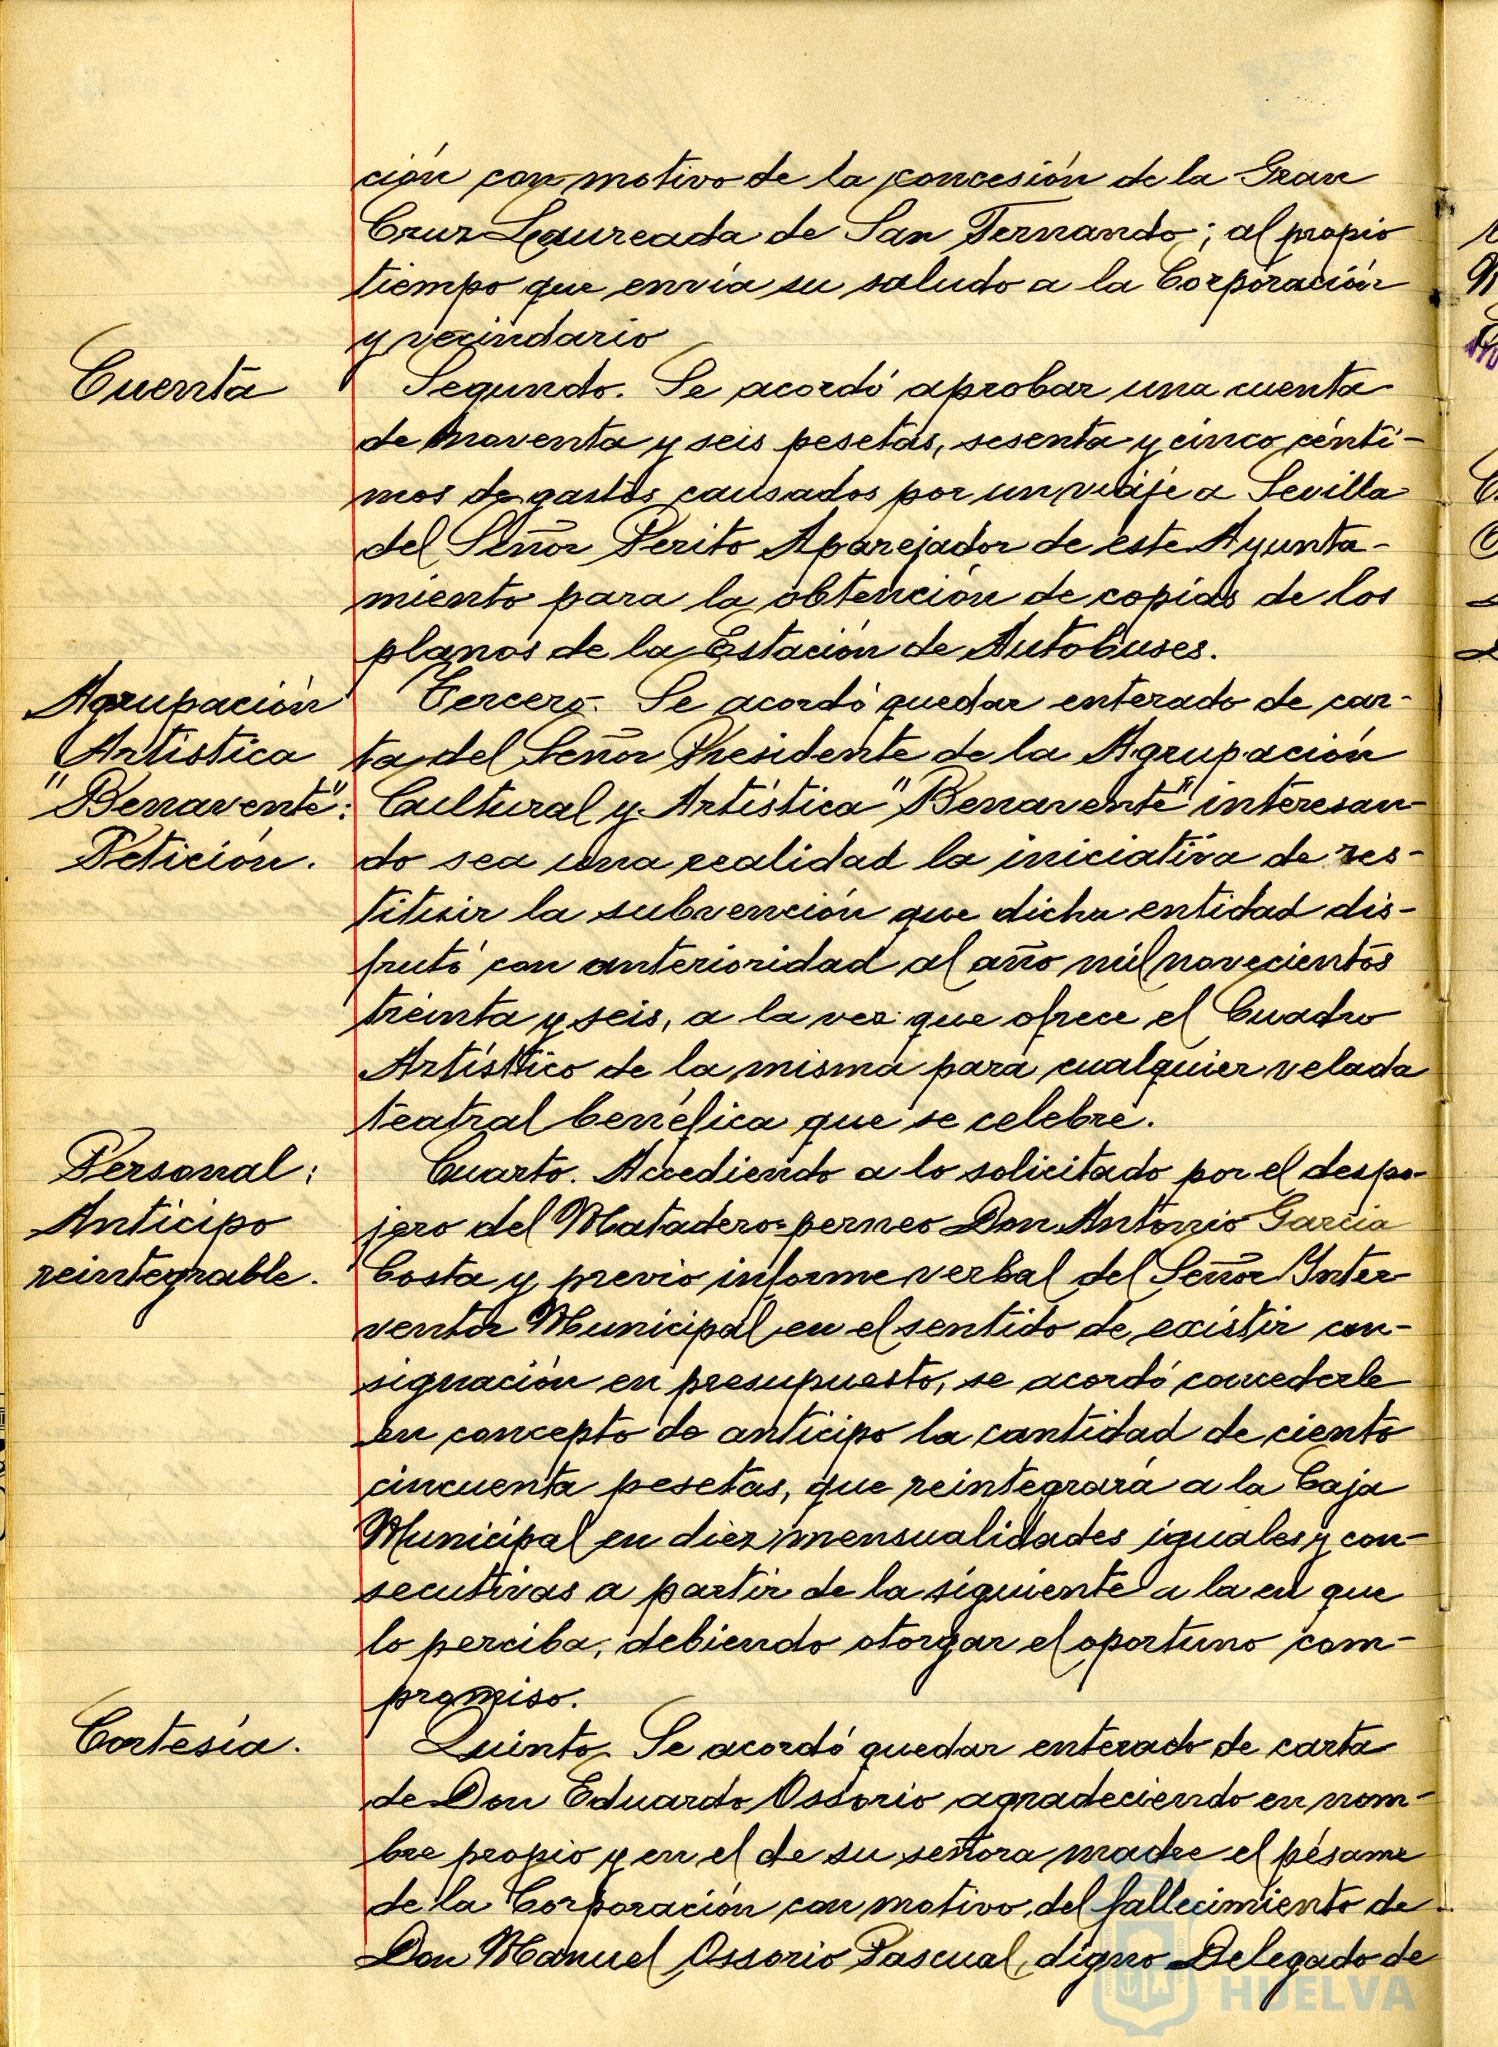 ción con motivo de la concesión de la Gran
Cruz Laureada de San Fernando; al propio
tiempo que envía su saludo a la Corporación
y vecindario
Cuenta
Segundo. Se acordó aprobar una cuenta
de noventa y seis pesetas, sesenta y cinco cénti-
mos de gastos causados por un viaje a Sevilla
del Señor Perito Aparejador de este Ayunta-
miento para la obtención de copias de los
planos de la Estación de Autobuses.
Agrupación
Artistica
"Benavente":
Petición.
Tercero. Se acordó quedar enterado de car-
ta del Señor Presidente de la Agrupación
Cultural y Artística "Benavente" interesan-
do sea una realidad la iniciativa de res-
tituir la subvención que dicha entidad dis-
frutó con anterioridad al año mil novecientos
treinta y seis, a la vez que ofrece el Cuadro
Artístico de la misma para cualquier velada
teatral benéfica que se celebre.
Personal:
Anticipo
reintegrable.
Cuarto. Accediendo a lo solicitado por el despo-
jero del Matadero permeo Don Antonio Garcia
Costa y previo informe verbal del Señor Inter
ventor Municipal en el sentido de existir con-
signación en presupuesto, se acordó concederle
en concepto de anticipo la cantidad de ciento
cincuenta pesetas, que reintegrará a la Caja
Municipal en diez mensualidades iguales y con-
secutivas a partir de la siguiente a la en que
lo perciba, debiendo otorgar el oportuno com-
promiso.
Cortesía.
Quinto. Se acordó quedar enterado de carta
de Don Eduardo Ossorio agradeciendo en nom-
bre propio y en el de su señora madre el pésame
de la Corporación con motivo del fallecimiento de
Don Manuel Ossorio Pascual, digno Delegado de
HUELVA